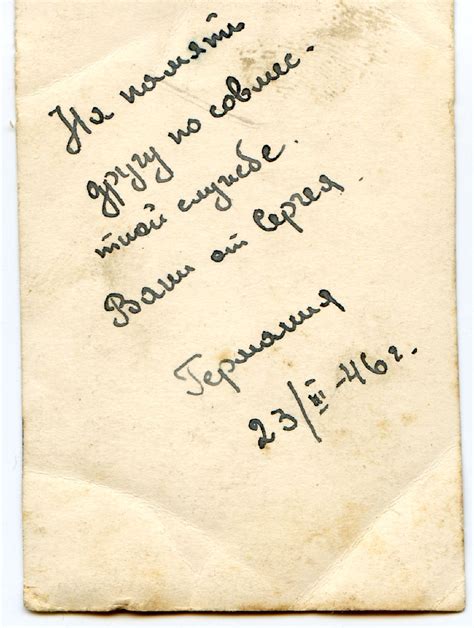 На память
другу по совмес-
тной службе.
Вани от Сергея.
Германия
23/III-46 г.